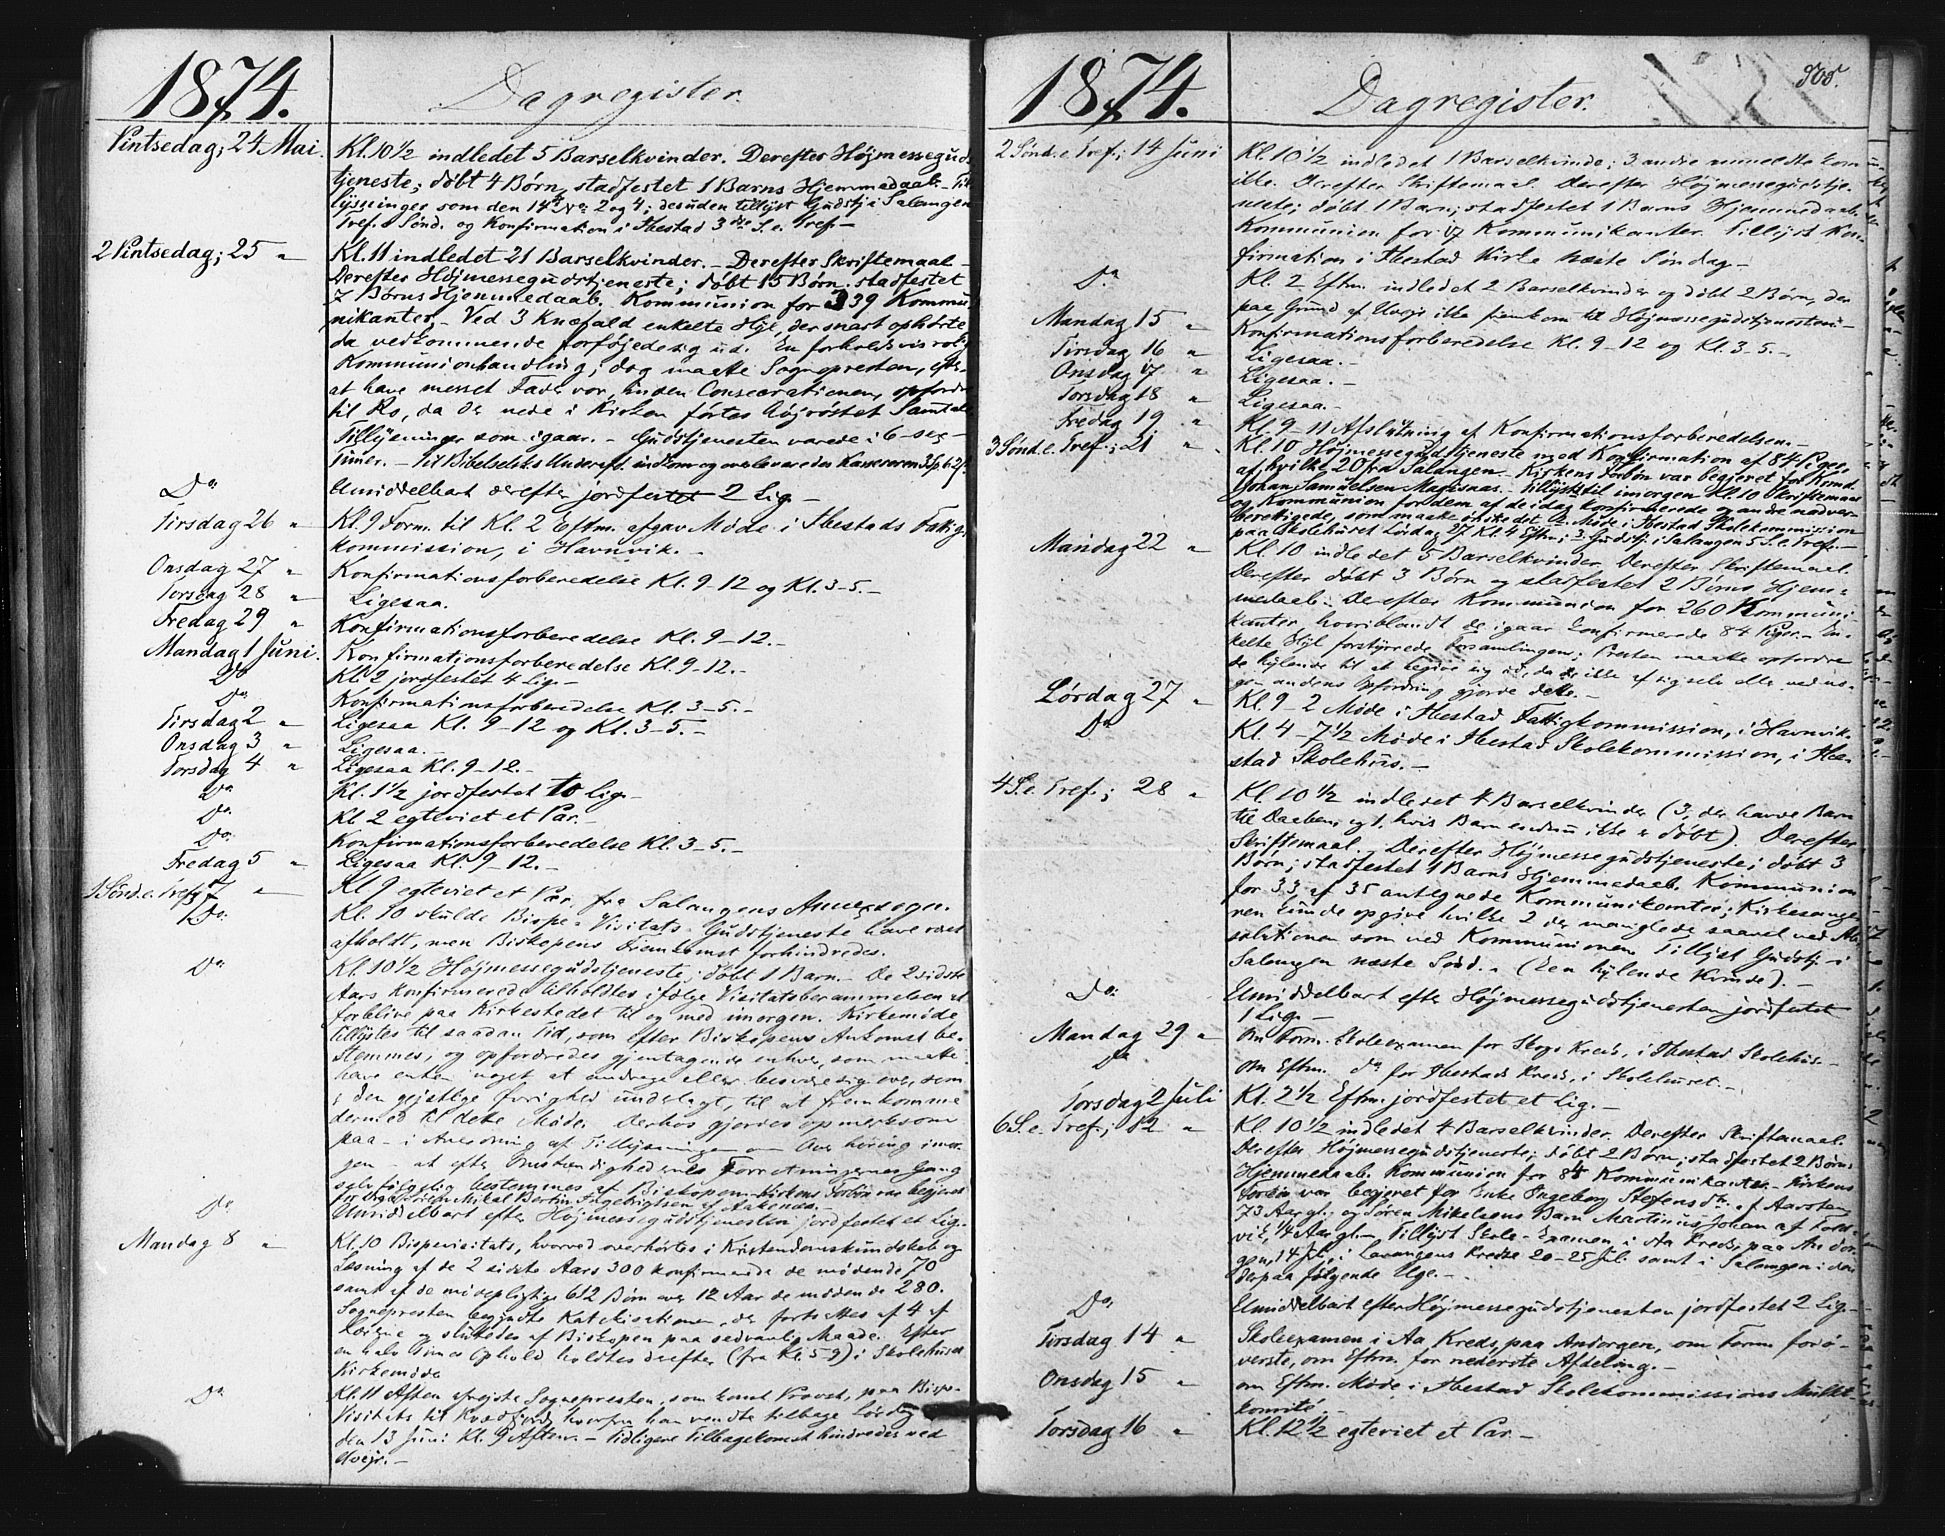 1874.
Dagregister.
Pintsedag; 24 Mai. Kl. 10½ indledet 5 Barselkvinder. Derefter Højmessegud-
tjeneste; døbt 4 Børn, stadfestet 1 Barns Hjemmedaab. - Til-
lysninger som den 14de No 2 og 4; desuden tillyst Gudstj. i Salangen
Tref. Sønd. og Konfirmation i Ibestad 3die S. e. Tref. -
2 Pintsedag; 25 " Kl. 11 indledet 21 Barselkvinder. - Derefter Skriftemaal -
Derefter Højmessegudstjeneste; døbt 15 Børn. stadfestet
7 Børns Hjemmedaab. Kommunion for 339 Kommu-
nikanter. - Ved 3 Knæfald enkelte Hyl, der snart ophørte,
da vedkommende forføjede sig ud. En forholdsvis rolig
Kommunionhandling; dog maatte Sognepresten, efter
at have messet Fader vor, inden Consecrationen, opfordre
til Ro, da der nede i Kirken førtes højrøstet Samtale
Tillysninger som igaar. - Gudstjenesten varede i 6 - sex -
Timer. - Til Bibelselsk. Underaft. indkom og overleveredes Kassereren 3 Sp. 62 s.
Do Umiddelbart derefter jordfestet 2 Lig. -
Tirsdag 26 " Kl. 9 Form. til Kl. 2 Eftm. afgav Møde i Ibestads Fattig-
kommission, i Havnvik. -
Onsdag 27 " Konfirmationsforberedelse Kl. 9-12 og Kl. 3-5. -
Torsdag 28 " Ligesaa.
Fredag 29 " Konfirmationsforberedelse Kl. 9-12. -
Mandag 1 Juni. Konfirmationsforberedelse Kl. 9-12. -
Do Kl. 2 jordfestet 4 Lig. -
Do Konfirmationsforberedelse Kl. 3-5. -
Tirsdag 2 " Ligesaa Kl. 9-12 og Kl. 3-5. -
Onsdag 3 " Ligesaa. -
Torsdag 4 " Ligesaa Kl. 9-12. -
Do Kl. 1½ jordfestet to Lig. -
Do Kl. 2 egteviet et Par. -
Do Konfirmationsforberedelse Kl. 3-5. -
Fredag 5 " Ligesaa Kl. 9-12. -
1 Sønd. e. Tref. 7 " Kl. 9 egteviet et Par, fra Salangens Annexsogn.
Do Kl. 10 skulde Bispe-Visitats-Gudstjeneste have vært
afholdt, men Biskopens Fremkomst forhindredes.
Do Kl. 10½ Højmessegudstjeneste; døbt 1 Barn. - De 2 sidste
Aars Konfirmerede tilholdtes ifølge Visitatsberammelsen at
forblive paa Kirkestedet til og med imorgen. Kirkemøde
tillystes til saadan Tid, som efter Biskopens Ankomst be-
stemmes, og opfordredes gjentagende enhver, som maatte
have enten noget at andrage eller besvære sig over, som
i den gejstlige Øvrighed underlagt, til at fremkomme
dermed til dette Møde. Derhos gjordes opmerksom
paa - i Anledning af Tillysningen om Overhøring imor-
gen - at efter Omstændighederne Forretningernes Gang
selvfølgelig bestemmes af Biskopen. Kirkens Forbøn var begjæret
for Mikal Bertin Ingebrigtsen af Aakenes. -
Do Umiddelbart efter Højmessegudstjenesten jordfestet et Lig.
Mandag 8 " Kl. 10 Bispevisitats, hvorved overhørtes i Kristendomskundskab og
Læsning af de 2 sidste Aars 300 konfirmerede de mødende 70
samt af de mødepligtige 612 Børn over 12 Aar de mødende 280.
Sognepresten begyndte Katekisationen, der fortsattes af 4 af
Lærerne og sluttedes af Biskopen paa sedvanlig Maade. Efter
en halv Times Ophold holdtes derefter (fra Kl. 5-9) i Skolehuset
Kirkemøde
Do Kl. 11 Aften afrejste Sognepresten, som konst. Provst, paa Bispe-
Visitats til Kvædfjord, hvorfra han vendte tilbage Lørdag
den 13 Juni Kl. 9 Aften. - Tidligere Tilbagekomst hindredes ved
Uvejr. -
1874.
Dagregister.
505.
2 Sønd. e. Tref.; 14 Juni Kl. 10½ indledet 1 Barselkvinde; 3 andre anmeldte kom
ikke. Derefter Skriftemaal. Derefter Højmessegudstje-
neste; døbt 1 Barn; stadfestet 1 Barns Hjemmedaab.
Kommunion for 17 Kommunikanter. Tillyst Kon-
firmation i Ibestad Kirke næste Søndag. -
Do Kl. 2 Eftm. indledet 2 Barselkvinder og døbt 2 Børn, der
paa Grund af Uvejr ikke fremkom til Højmessegudstjenesten. -
Mandag 15 " Konfirmationsforberedelse Kl. 9-12 og Kl. 3-5. -
Tirsdag 16 " Ligesaa. -
Onsdag 17 " Ligesaa. -
Torsdag 18 " Ligesaa. -
Fredag 19 " Kl. 9-11 Afslutning af Konfirmationsforberedelsen. -
3 Sønd. e. Tref.; 21 " Kl. 10 Højmessegudstjeneste med Konfirmation af 84 Piger,
af hvilke 20 fra Salangen. Kirkens Forbøn var begjæret for Konfmd.
Johan Samuelsen Magisnæs. - Tillyst til imorgen Kl. 10 Skriftemaal
og Kommunion for dem af de idag konfirmerede og andre nadver-
berettigede, som maatte ønske det. 2. Møde i Ibestad Skolekommission
paa Skolehuset Lørdag 27 Kl. 4 Eftm; 3. Gudstj. i Salangen 5 S. e. Tref. -
Mandag 22 " Kl. 10 indledet 5 Barselkvinder. Derefter Skriftemaal.
Derefter døbt 3 Børn og stadfestet 2 Børns Hjem-
medaab. Derefter Kommunion for 260 Kommuni-
kanter, hvoriblandt de igaar konfirmerede 84 Piger. - En-
kelte Hyl forstyrrede Forsamlingen; Presten maatte opfordre
de hylende til at begive sig ud, da de ikke af sig selv eller ved no-
gen andens Opfordring gjorde dette. -
Lørdag 27 " Kl. 9-2 Møde i Ibestad Fattigkommission, i Havnvik.
Do Kl. 4-7½ Møde i Ibestad Skolekommission, i Ibe-
stad Skolehus. -
4 S. e. Tref.; 28 " Kl. 10½ indledet 4 Barselkvinder (3, der havde Barn
til Daaben, og 1, hvis Barn endnu ikke er døbt). Derefter
Skriftemaal. Derefter Højmessegudstjeneste; døbt 3
Børn; stadfestet 1 Barns Hjemmedaab. Kommunion
for 33 af 35 antegnede Kommunikanter; Kirkesange-
ren kunde opgive hvilke 2 der manglede saavel ved Ab-
solutionen som ved Kommunionen. Tillyst Gudstj. i
Salangen næste Sønd. - (Een hylende Kvinde). -
Do Umiddelbart efter Højmessegudstjenesten jordfestet
1 Lig. -
Mandag 29 " Om Form. Skoleexamen for Skogs Kreds, i Ibestad Skolehus. -
Do Om Eftm. do for Ibestads Kreds, i Skolehuset. -
Torsdag 2 Juli Kl. 2½ Eftm. jordfestet et Lig. -
6 S. e. Tref.; 12 " Kl. 10½ indledet 4 Barselkvinder. Derefter Skriftemaal.
Derefter Højmessegudstjeneste; døbt 2 Børn; stadfestet 2 Børns
Hjemmedaab. Kommunion for 84 Kommunikanter. Kirkens
Forbøn var begjæret for Enke Ingeborg Steffensdtr. af Aarsten,
73 Aar gl., og Søren Mikelsens Barn Martinus Johan af Fold-
vik, ¼ Aar gl. - Tillyst Skole-Examen i Aa Kreds, paa Andor-
gen, 14 Jul., i Lavangens Kredse 20-25 Jul. samt i Salangen i den
derpaa følgende Uge. -
Do Umiddelbart efter Højmessegudstjenesten jordfestet 2 Lig. -
Tirsdag 14 " Skoleexamen i Aa Kreds, paa Andorgen, om Form. for ø-
verste, om Eftm. for nederste Afdeling. -
Onsdag 15 " om Eftm. Møde i Ibestad Skolekommissions Mulkt-
komité. -
Torsdag 16 " Kl. 12½ egteviet et Par. -